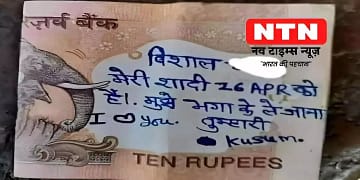 रज़र्व बैंक
NTN
नव टाइम्स न्यूज़
"भारत की पहचान"
विशाल
मेरी शादी 26 APR को
है!. मुझे भगा के ले जाना
I ♡ you. तुम्हारी
kusum.
TEN RUPEES